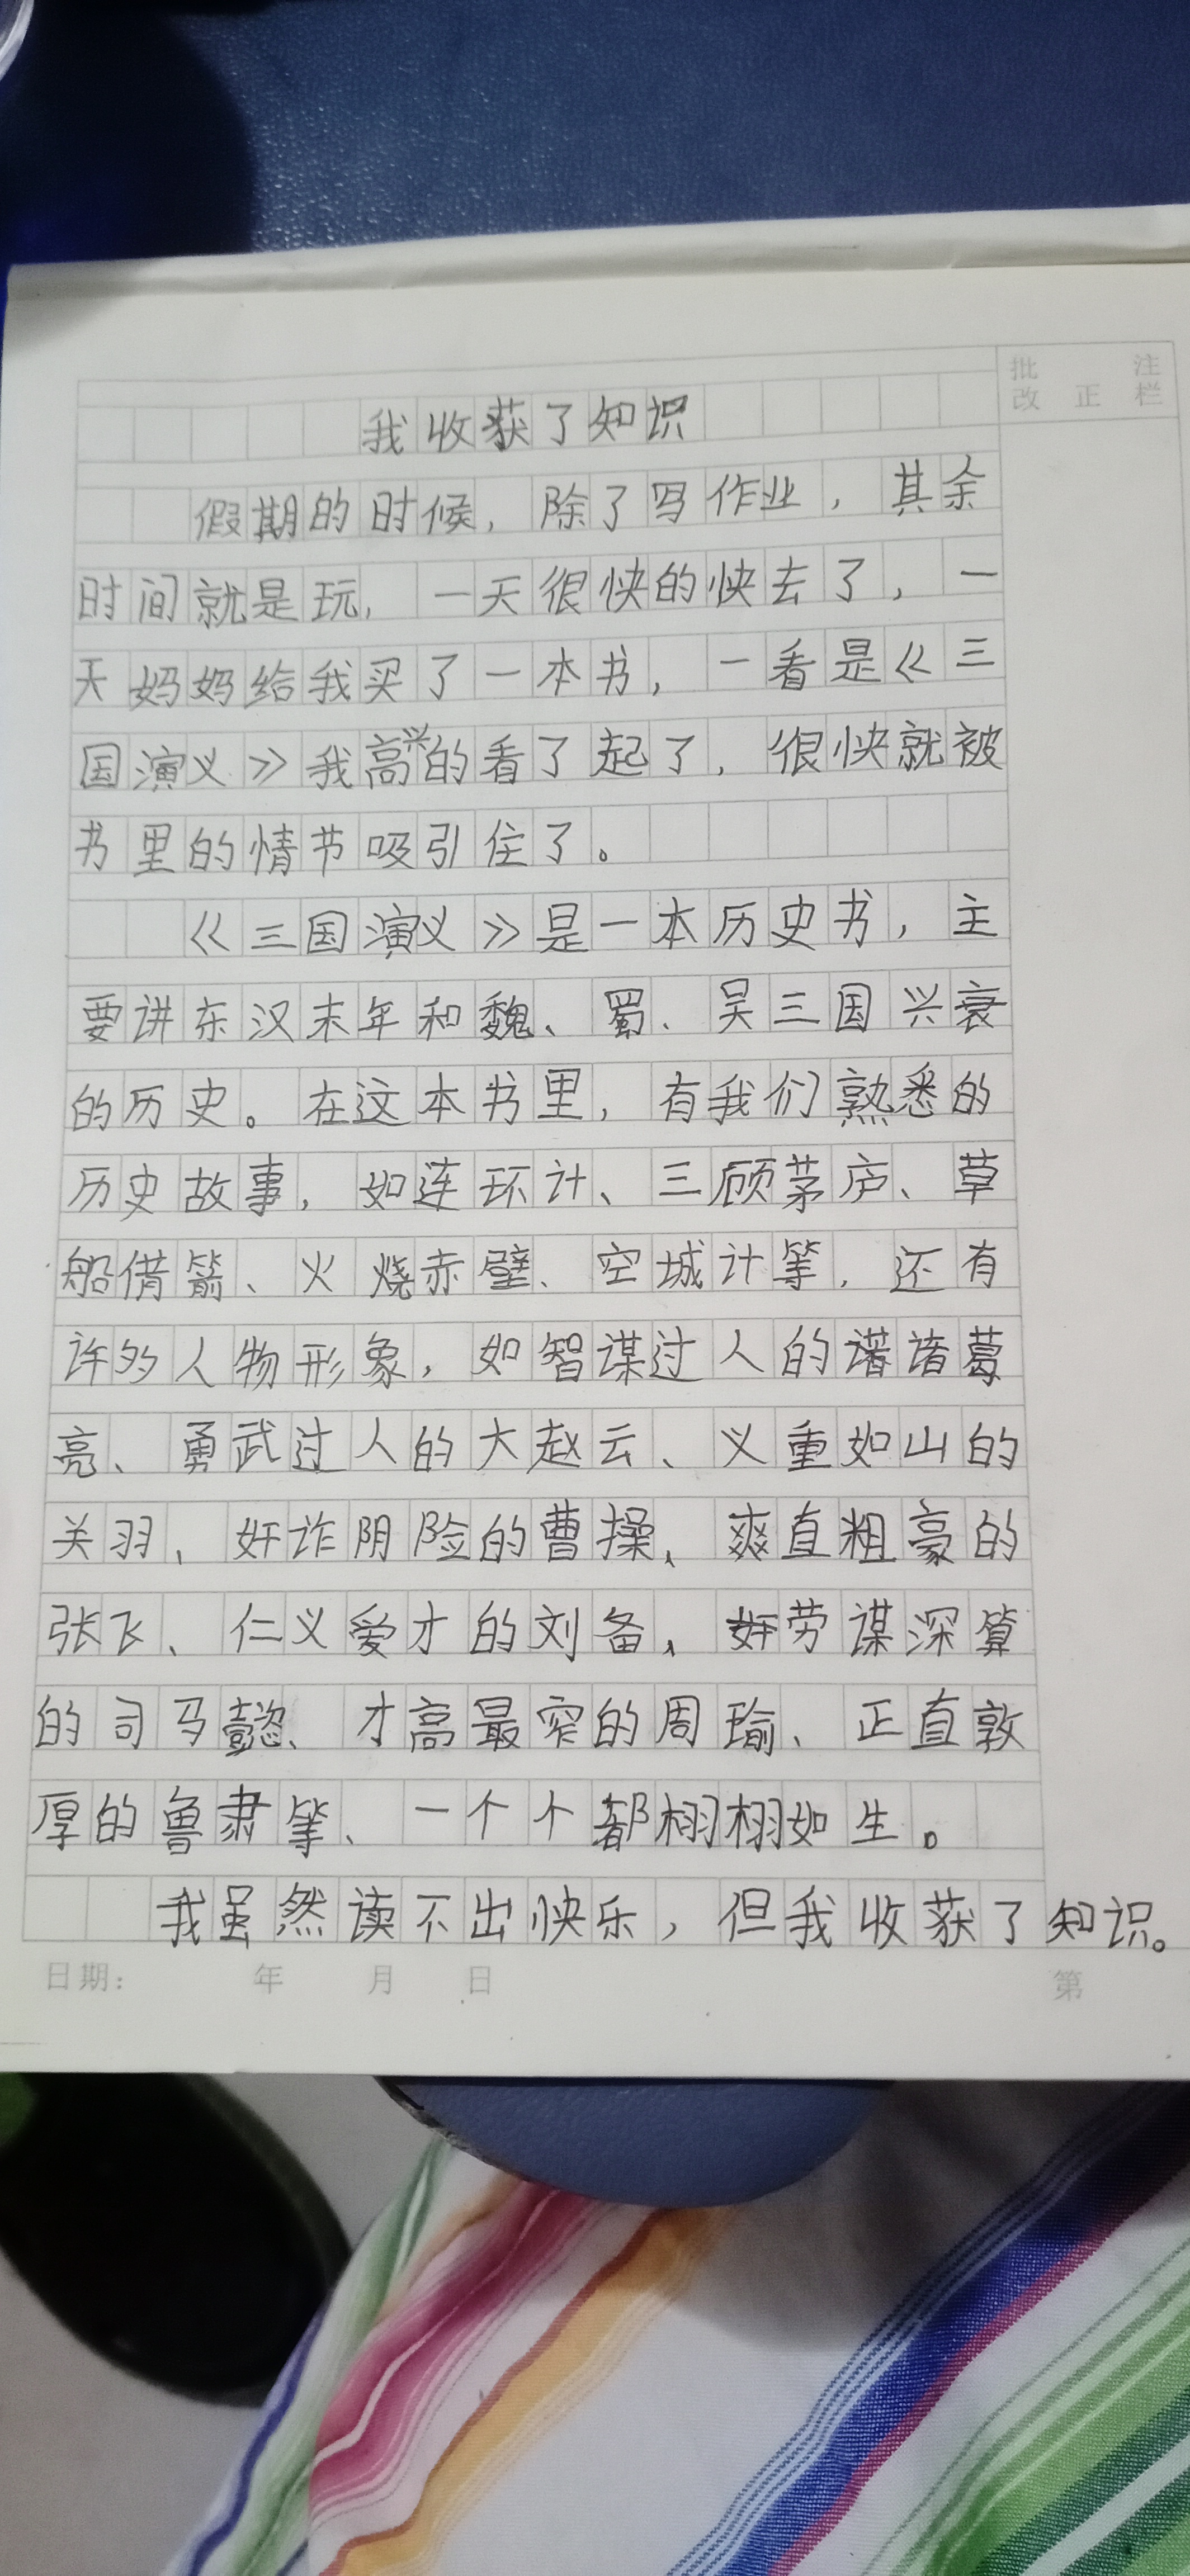 批注
改正栏
我收获了知识
假期的时候，除了写作业，其余
时间就是玩，一天很快的快去了，一
天妈妈给我买了一本书，一看是《三
国演义》我高兴的看了起了，很快就被
书里的情节吸引住了。
《三国演义》是一本历史书，主
要讲东汉末年和魏、蜀、吴三国兴衰
的历史。在这本书里，有我们熟悉的
历史故事，如连环计、三顾茅庐、草
船借箭、火烧赤壁、空城计等，还有
许多人物形象，如智谋过人的诸诸葛
亮、勇武过人的大赵云、义重如山的
关羽、奸诈阴险的曹操、爽直粗豪的
张飞、仁义爱才的刘备、奸劳谋深算
的司马懿、才高最窄的周瑜、正直敦
厚的鲁肃等、一个个都栩栩如生。
我虽然读不出快乐，但我收获了知识。
日期： 年 月 日 第